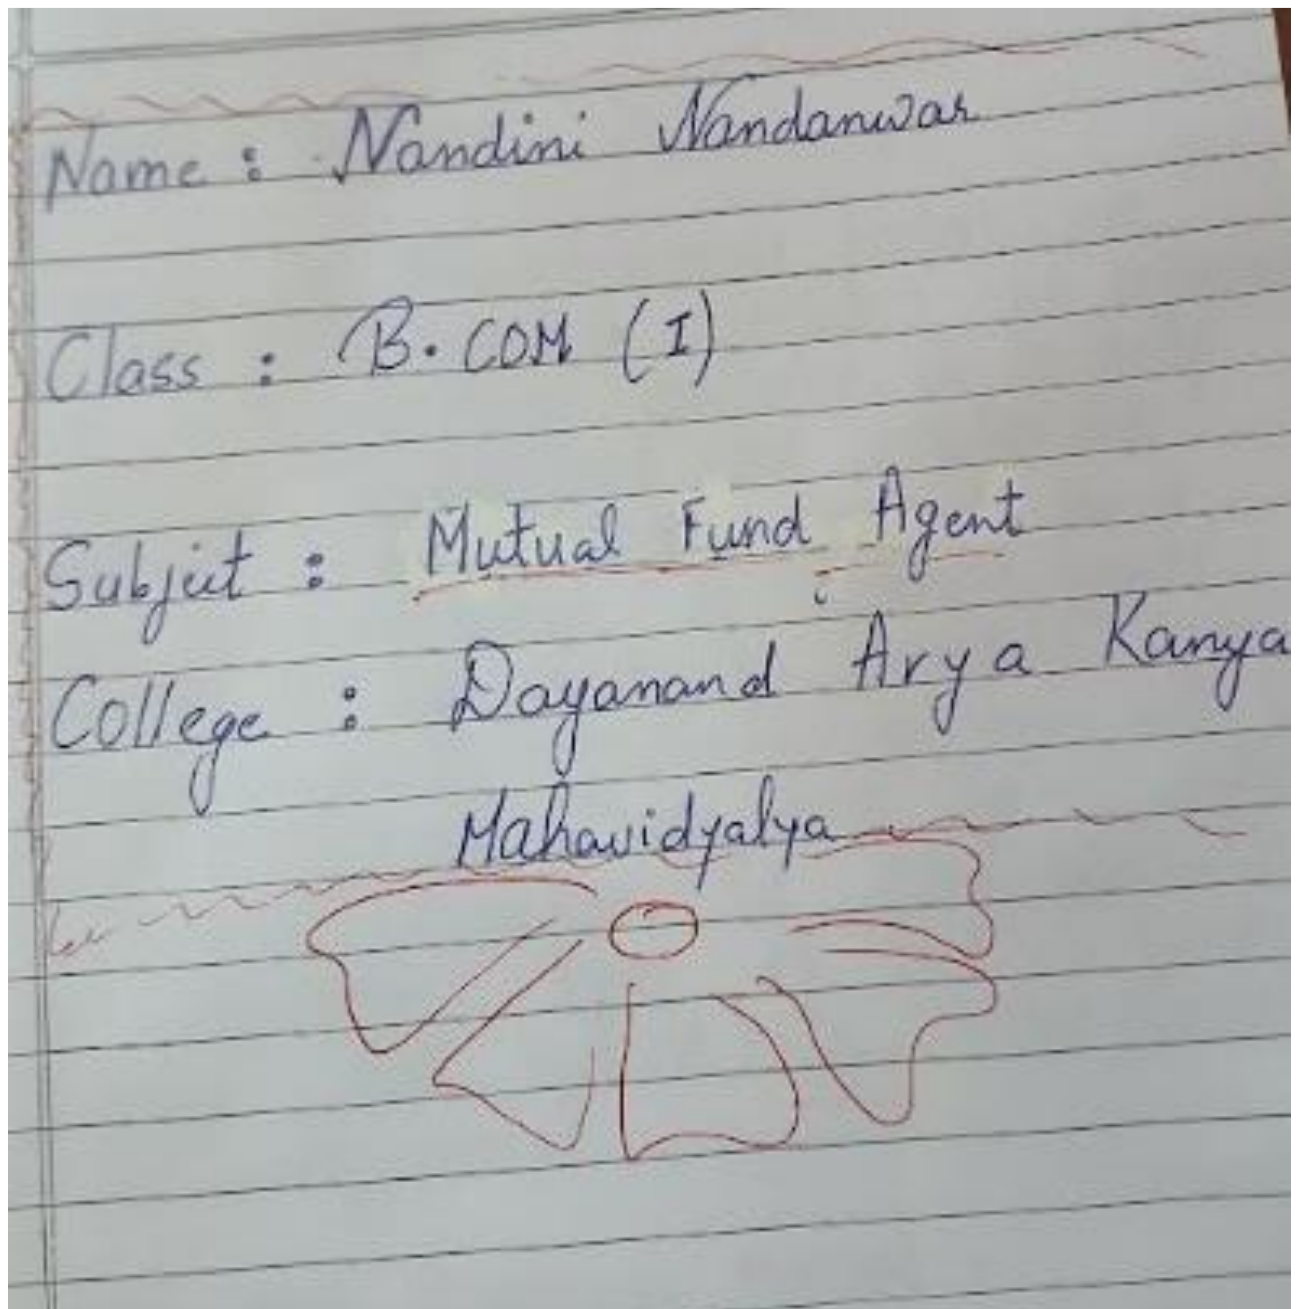 Name : Nandini Nandanwar
Class : B.COM (I)
Subject : Mutual Fund Agent
College : Dayanand Arya Kanya
Mahavidyalya